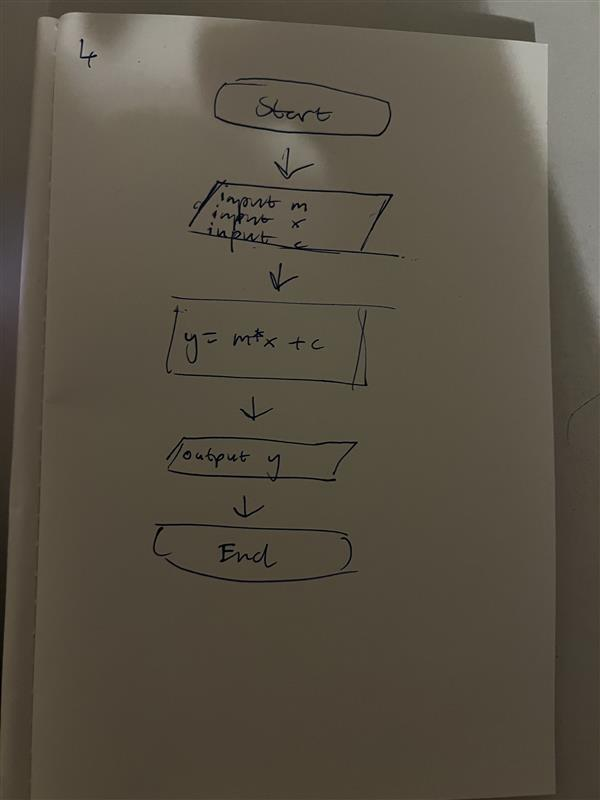 4
Start
input m
input x
input c
y = m*x + c
output y
End